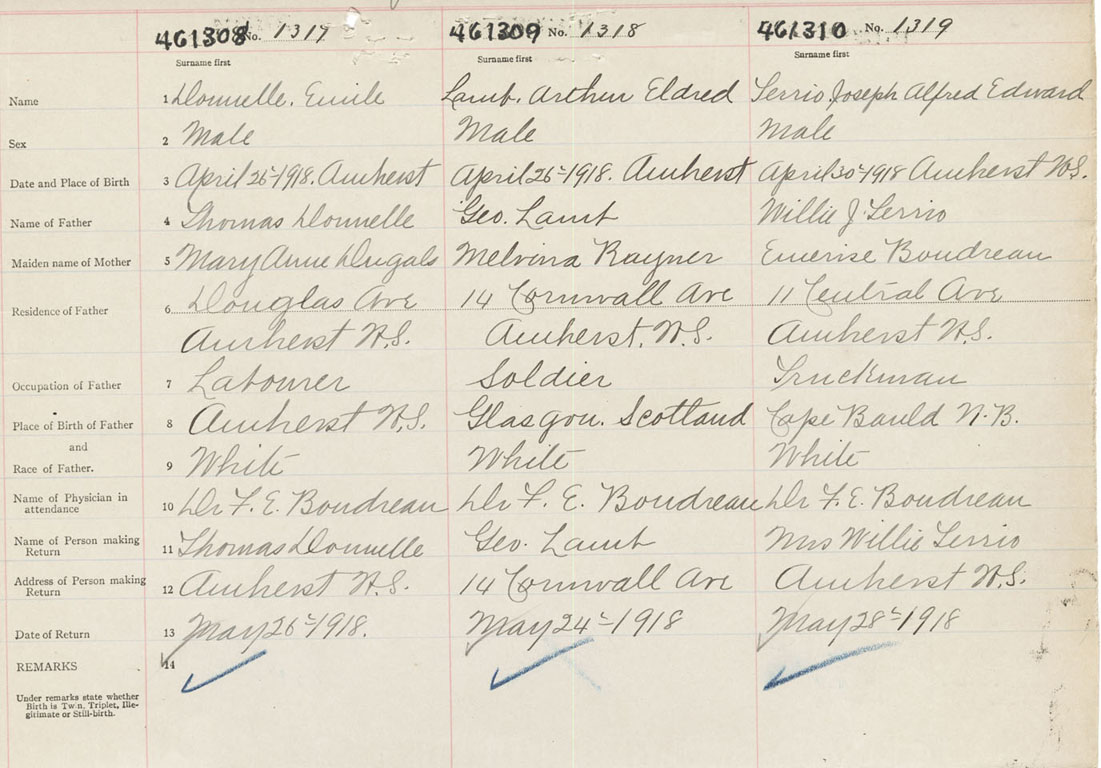 461308 No. 1317 461309 No. 1318 461310 No. 1319
Surname first Surname first Surname first
Name 1 Donnelle, Emile Lamb, Arthur Eldred Joseph Alfred Edward
Sex 2 Male Male Male
Date and Place of Birth 3 April 26-1918. Amherst April 26-1918. Amherst April 30-1918 Amherst N.S.
Name of Father 4 Thomas Donnelle Geo. Lamb Willie J.
Maiden name of Mother 5 Mary Anne Melvina Rayner Boudreau
Residence of Father 6 Douglas Ave 14 Cornwall Ave 11 Central Ave
Amherst N.S. Amherst, N.S. Amherst N.S.
Occupation of Father 7 Labourer Soldier Truckman
Place of Birth of Father 8 Amherst N.S. Glasgow. Scotland Cape Bauld N.B.
and
Race of Father. 9 White White White
Name of Physician in attendance 10 Dr F. E. Boudreau Dr F. E. Boudreau Dr F. E. Boudreau
Name of Person making Return 11 Thomas Donnelle Geo. Lamb Mrs Willie
Address of Person making Return 12 Amherst N.S. 14 Cornwall Ave Amherst N.S.
Date of Return 13 May 26-1918. May 24-1918 May 28-1918
REMARKS 14
Under remarks state whether
Birth is Twin, Triplet, Ille-
gitimate or Still-birth.